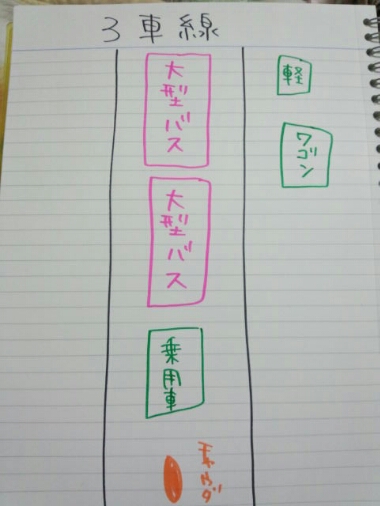 3車線
大型バス
大型バス
乗用車
軽
ワゴン